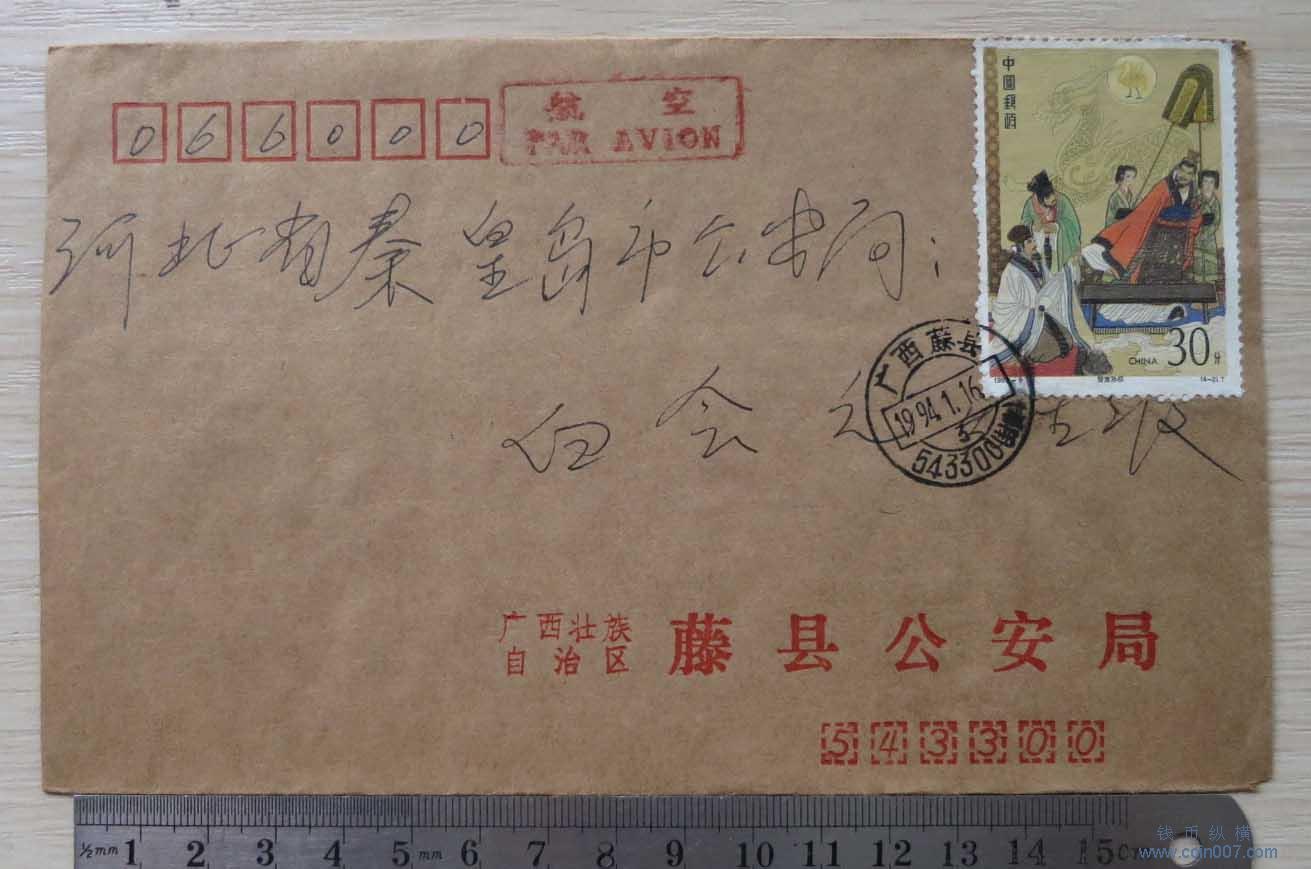 066000
航 空
PAR AVION
中国邮政
河北省秦皇岛市公安局:
CHINA 30分
广西藤县
1994.1.16
543300
广西壮族
自治区
藤县公安局
543300
½mm 1 2 3 4 5 mm 6 7 8 9 10 11 12 13 14 15
钱币纵横
www.cqjn007.com